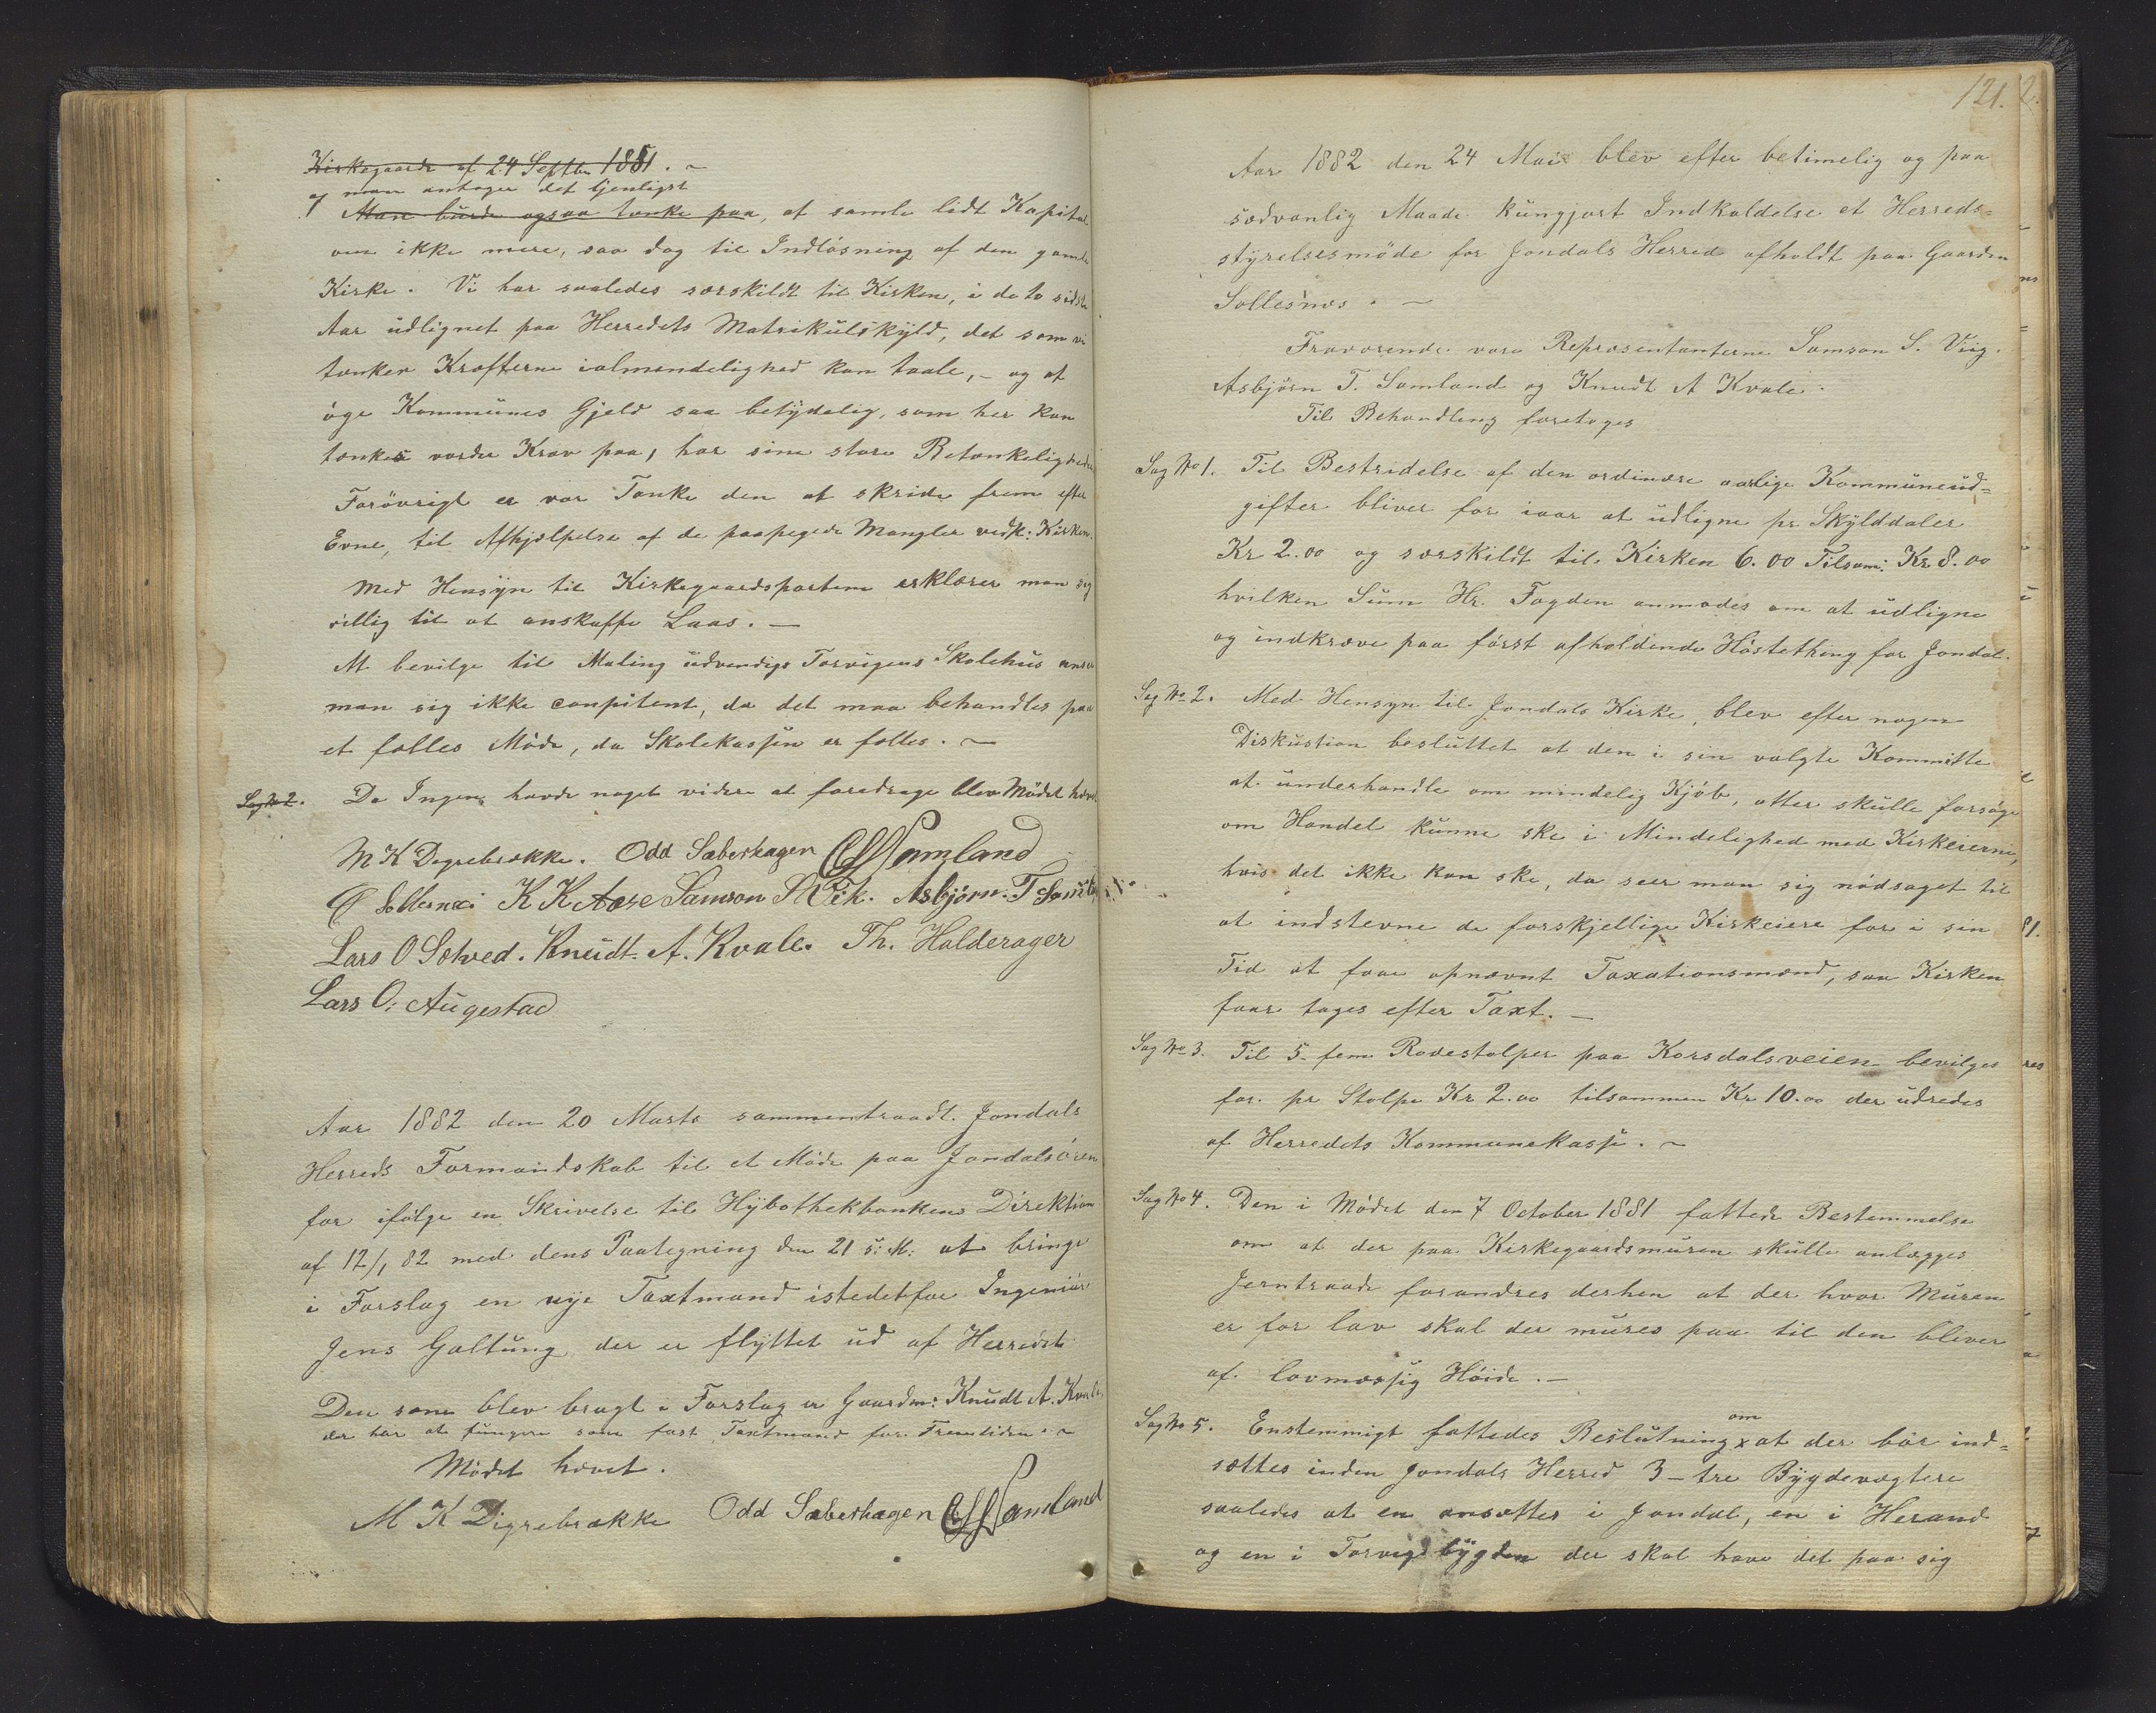 Kirkegaarde af 24 Septbr 1881. ~
og man antager det tjenligst
Man burde ogsaa tænke paa, at samle lidt Kapital
om ikke mere, saa dog til Indløsning af den gamle
Kirke. Vi har saaledes særskildt til Kirken, i de to sidste
Aar udlignet paa Herredets Matrikulskyld, det som vi
tænker Kræfterne ialmendelighed kan taale, – og at
øge Kommunes Gjeld saa betydelig, som her kan
tænkes vorde Krav paa, har sine store Betænkeligheder
Forøvrigt er vor Tanke den at skride frem efter
Evne, til Afhjælpelse af de paapegede Mangler vedk: Kirken.
Med Hensyn til Kirkegaardsportene erklærer man sig
villig til at anskaffe Laas. —
At bevilge til Maling udvendigs Torvigens Skolehus anser
man sig ikke conpitent, da det maa behandles paa
et fælles Møde, da Skolekassen er fælles. ~
Sag No 2. Da Ingen havde noget videre at foredrage blev Mødet hævet
M K Digrebrække. Odd Sæbershagen Samland
O Sollesnæs K K Aase Samson S Vik. Asbjørn. T Samland
Lars O Sætved. Knudt. A. Kvale. Th. Halderager
Lars O. Augestad
Aar 1882 den 20 Marts sammentraadt. Jondals
Herreds Formandskab til et Møde paa Jondalsøren
for ifølge en Skrivelse til Hybothekbankens Direktion
af 12/1 82 med dens Paategning den 21 s: M: at bringe
i Forslag en nye Taxtmand istedetfor Ingeniør
Jens Galtung, der er flyttet ud af Herredet
Den som blev bragt i Forslag er Gaardm: Knudt A. Kvale,
der har at fungere som fast Taxtmand for Fremtiden. ~
Mødet hævet.
M K Digrebrække Odd Sæbershagen Samland
121.
Aar 1882 den 24 Mai blev efter betimelig og paa
sædvanlig Maade kungjort Indkaldelse et Herreds=
styrelsesmøde for Jondals Herred afholdt paa Gaarden
Sollesnæs. ~
Fraværende vare Repræsentanterne Samson S. Viig.
Asbjørn T. Samland og Knudt A Kvale.
Til Behandling foretoges
Sag No 1. Til Bestridelse af den ordinære aarlige Kommuneud=
gifter bliver for iaar at udligne pr Skylddaler
Kr 2.00 og særskildt til Kirken 6.00 Tilsam: Kr. 8.00
hvilken Sum Hr. Fogden anmodes om at udligne
og indkræve paa først afholdende Høstething for Jondal.
Sag No 2. Med Hensyn til Jondals Kirke, blev efter nogen
Diskustion besluttet at den i sin valgte Kommitte
at underhandle om mindelig Kjøb, atter skulle forsøge
om Handel kunne ske i Mindelighed med Kirkeierne,
hvis det ikke kan ske, da seer man sig nødsaget til
at indstevne de forskjellige Kirkeiere for i sin
Tid at faae opnævnt Taxationsmænd, saa Kirken
faar tages efter Taxt. —
Sag No 3. Til 5– fem Rodestolper paa Korsdalsveien bevilges
for. pr Stolpe Kr 2.00 tilsammen Kr 10.00 der udredes
af Herredets Kommunekasse. ~
Sag No 4. Den i Mødet den 7 October 1881 fattede Bestemmelse
om at der paa Kirkegaardsmuren skulle anlægges
Jerntraade forandres derhen at der hvor Muren
er for lav skal der mures paa til den bliver
af lovmæssig Høide. —
Sag No 5. Enstemmigt fattedes Beslutning x om at der bør ind=
sættes inden Jondals Herred 3– tre Bygdevægtere
saaledes at en ansættes i Jondal, en i Herand
og en i Torvigsbygden der skal have det paa sig